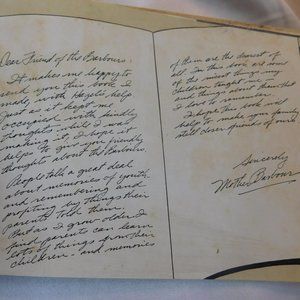 Dear Friend of the Barbours:
It makes me happy to
send you this book I
made, with Hazel's help.
Just as it kept me
occupied with kindly
thoughts while I was
making it, I hope it
helps to give you friendly
thoughts about the Barbours.
People talk a great deal
about memories of youth,
and remembering and
profiting by things their
parents told them.
But as I grow older I
find parents can learn
lots of things from their
children - and memories
of them are the dearest of
all. In this book are some
of the nicest things my
children taught me,
and things about them that
I love to remember.
I hope this book will
help to make your family
still closer friends of ours.
Sincerely
Mother Barbour